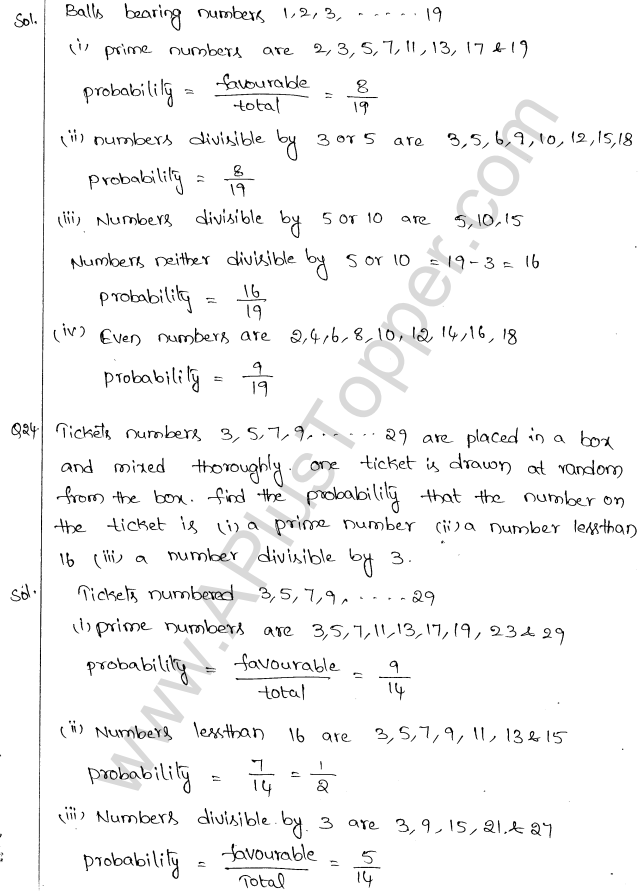 Sol. Balls bearing numbers 1, 2, 3, ...... 19
(i) prime numbers are 2, 3, 5, 7, 11, 13, 17 & 19
probability = favourable/total = 8/19
(ii) numbers divisible by 3 or 5 are 3, 5, 6, 9, 10, 12, 15, 18
probability = 8/19
(iii) Numbers divisible by 5 or 10 are 5, 10, 15
Numbers neither divisible by 5 or 10 = 19 - 3 = 16
probability = 16/19
(iv) Even numbers are 2, 4, 6, 8, 10, 12, 14, 16, 18
probability = 9/19
Q24. Tickets numbers 3, 5, 7, 9, ...... 29 are placed in a box
and mixed thoroughly. one ticket is drawn at random
from the box. find the probability that the number on
the ticket is (i) a prime number (ii) a number lessthan
16 (iii) a number divisible by 3.
Sol. Tickets numbered 3, 5, 7, 9, ..... 29
(i) prime numbers are 3, 5, 7, 11, 13, 17, 19, 23 & 29
probability = favourable/total = 9/14
(ii) Numbers lessthan 16 are 3, 5, 7, 9, 11, 13 & 15
probability = 7/14 = 1/2
(iii) Numbers divisible by 3 are 3, 9, 15, 21 & 27
probability = favourable/Total = 5/14
www.APlusTopper.com